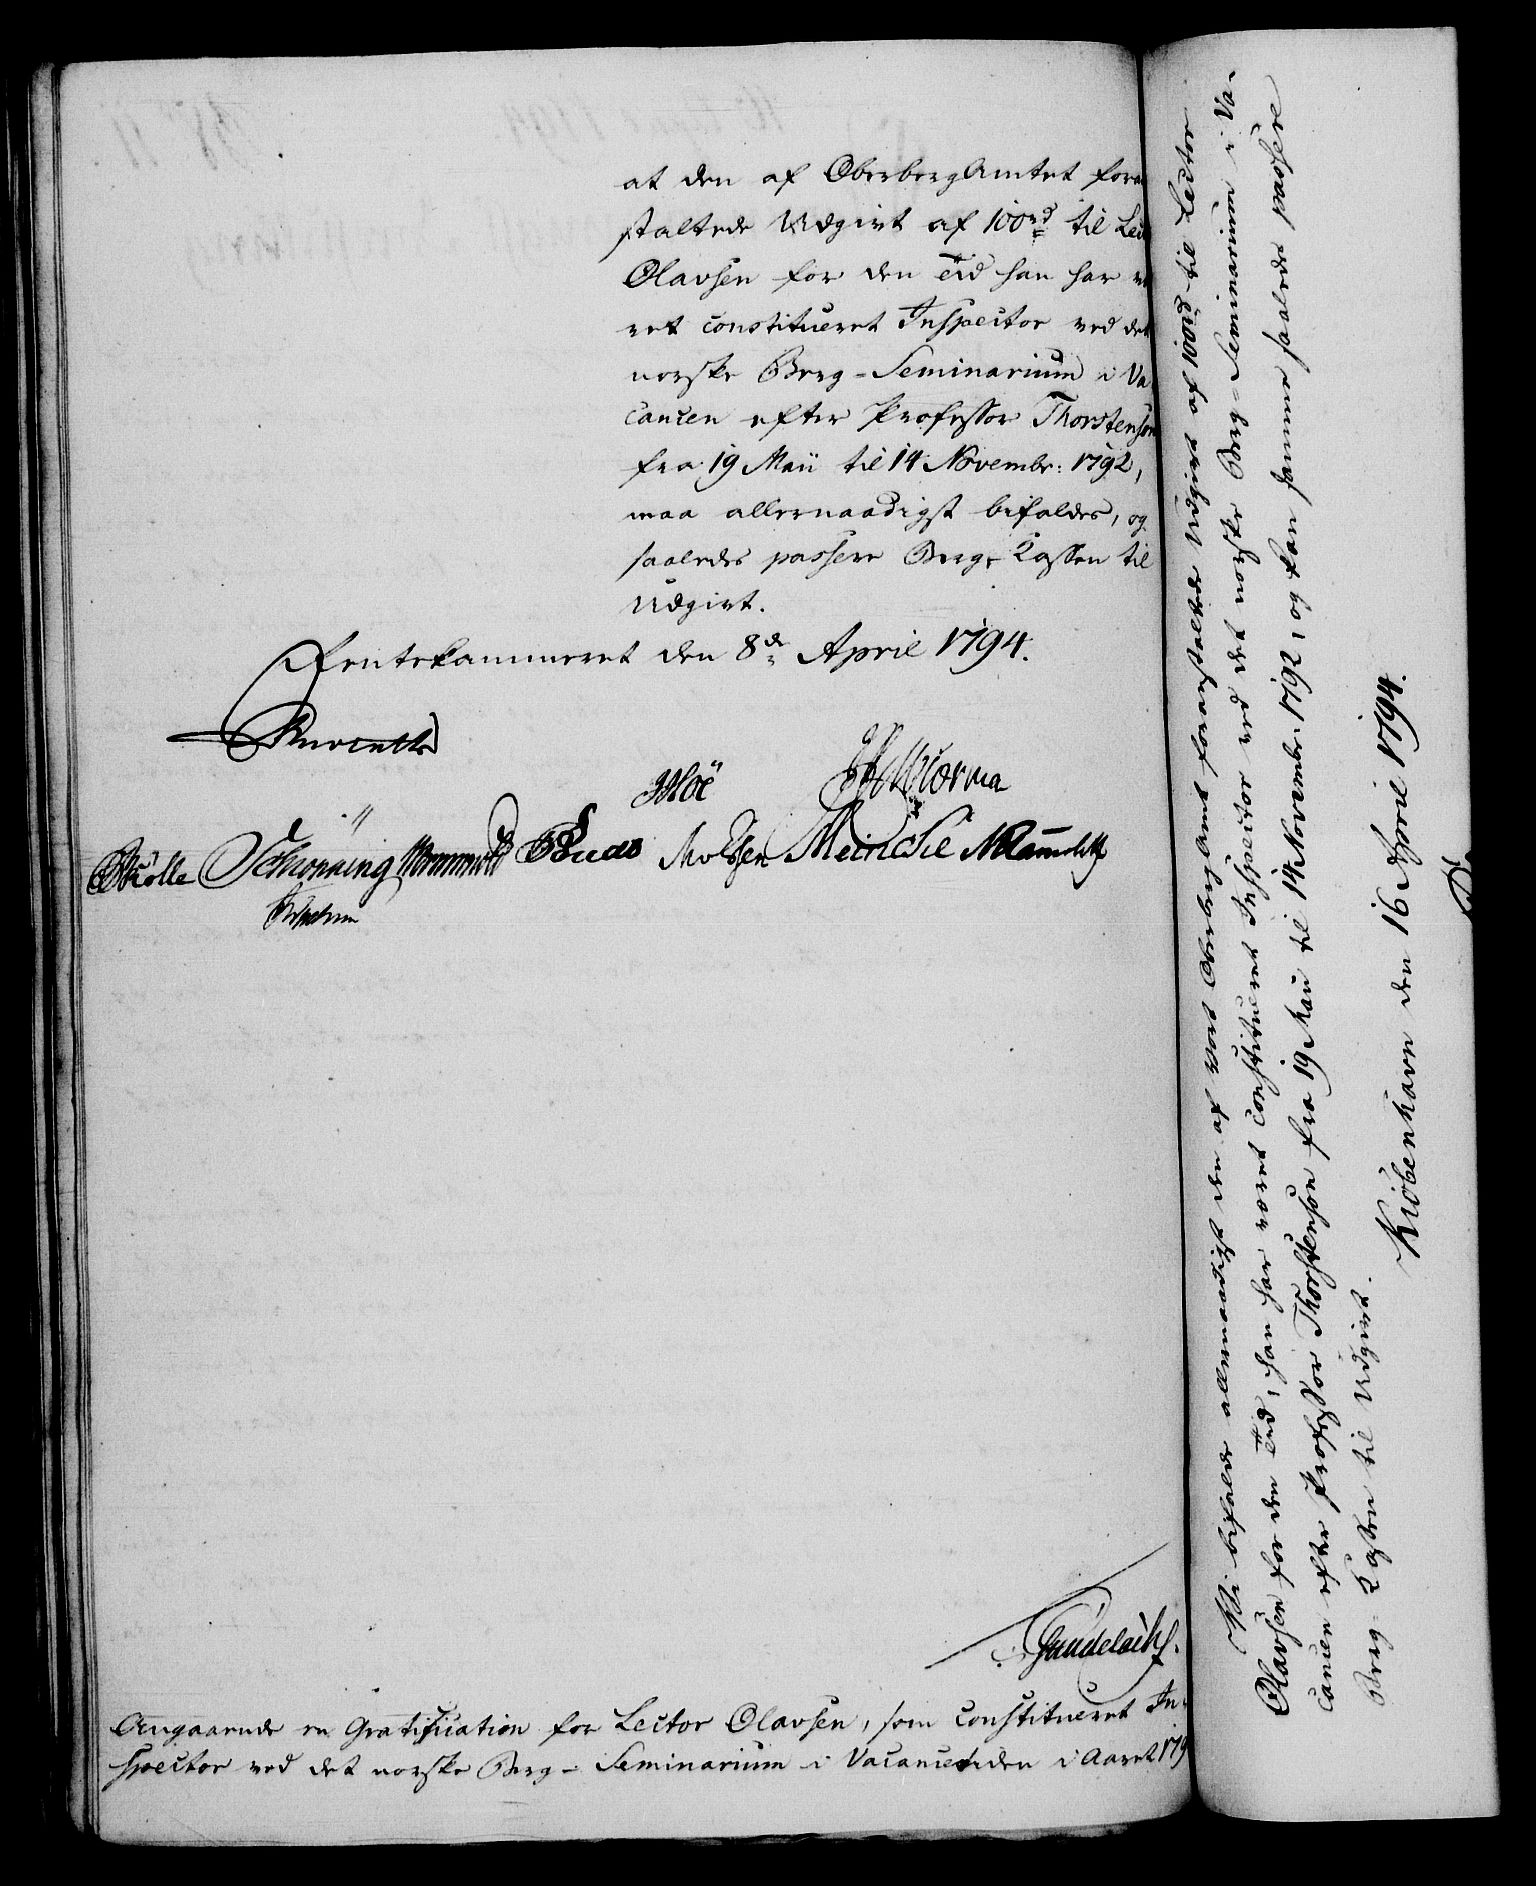 at den af OberbergAmtet foran
staltede Udgivt af 100rd til Lec
Olavsen for den Tid han har væ
ret constitueret Inspector ved det
norske Berg-Seminarium i Va
cancen efter Professor Thorstensen
fra 19 Maii til 14 Novembr: 1792,
maa allernaadigst bifaldes, og
saaledes passere Berg-Cassen til
Udgivt.
Rentekammeret den 8de April 1794.
Reventlo
JHoë
Skiølle Schiønning Wormskiold Meincke
Angaaende en Gratification for Lector Olavsen, som constitueret In-
spector ved det norske Berg-Seminarium i Vacancetiden i Aaret 179
Vi bifalde allernaadigst den af Vort Oberbergamt foranstaltede Udgivt af 100rd til Lector
Olavsen for den Tid, han har været constitueret Inspector ved det norske Berg-Seminarium i Va-
cancen efter Professor Thorstensen fra 19 Maii til 14 Novembr: 1792, og kan samme saaledes passere
Berg-Cassen til Udgivt.
Kiøbenhavn den 16 April 1794.